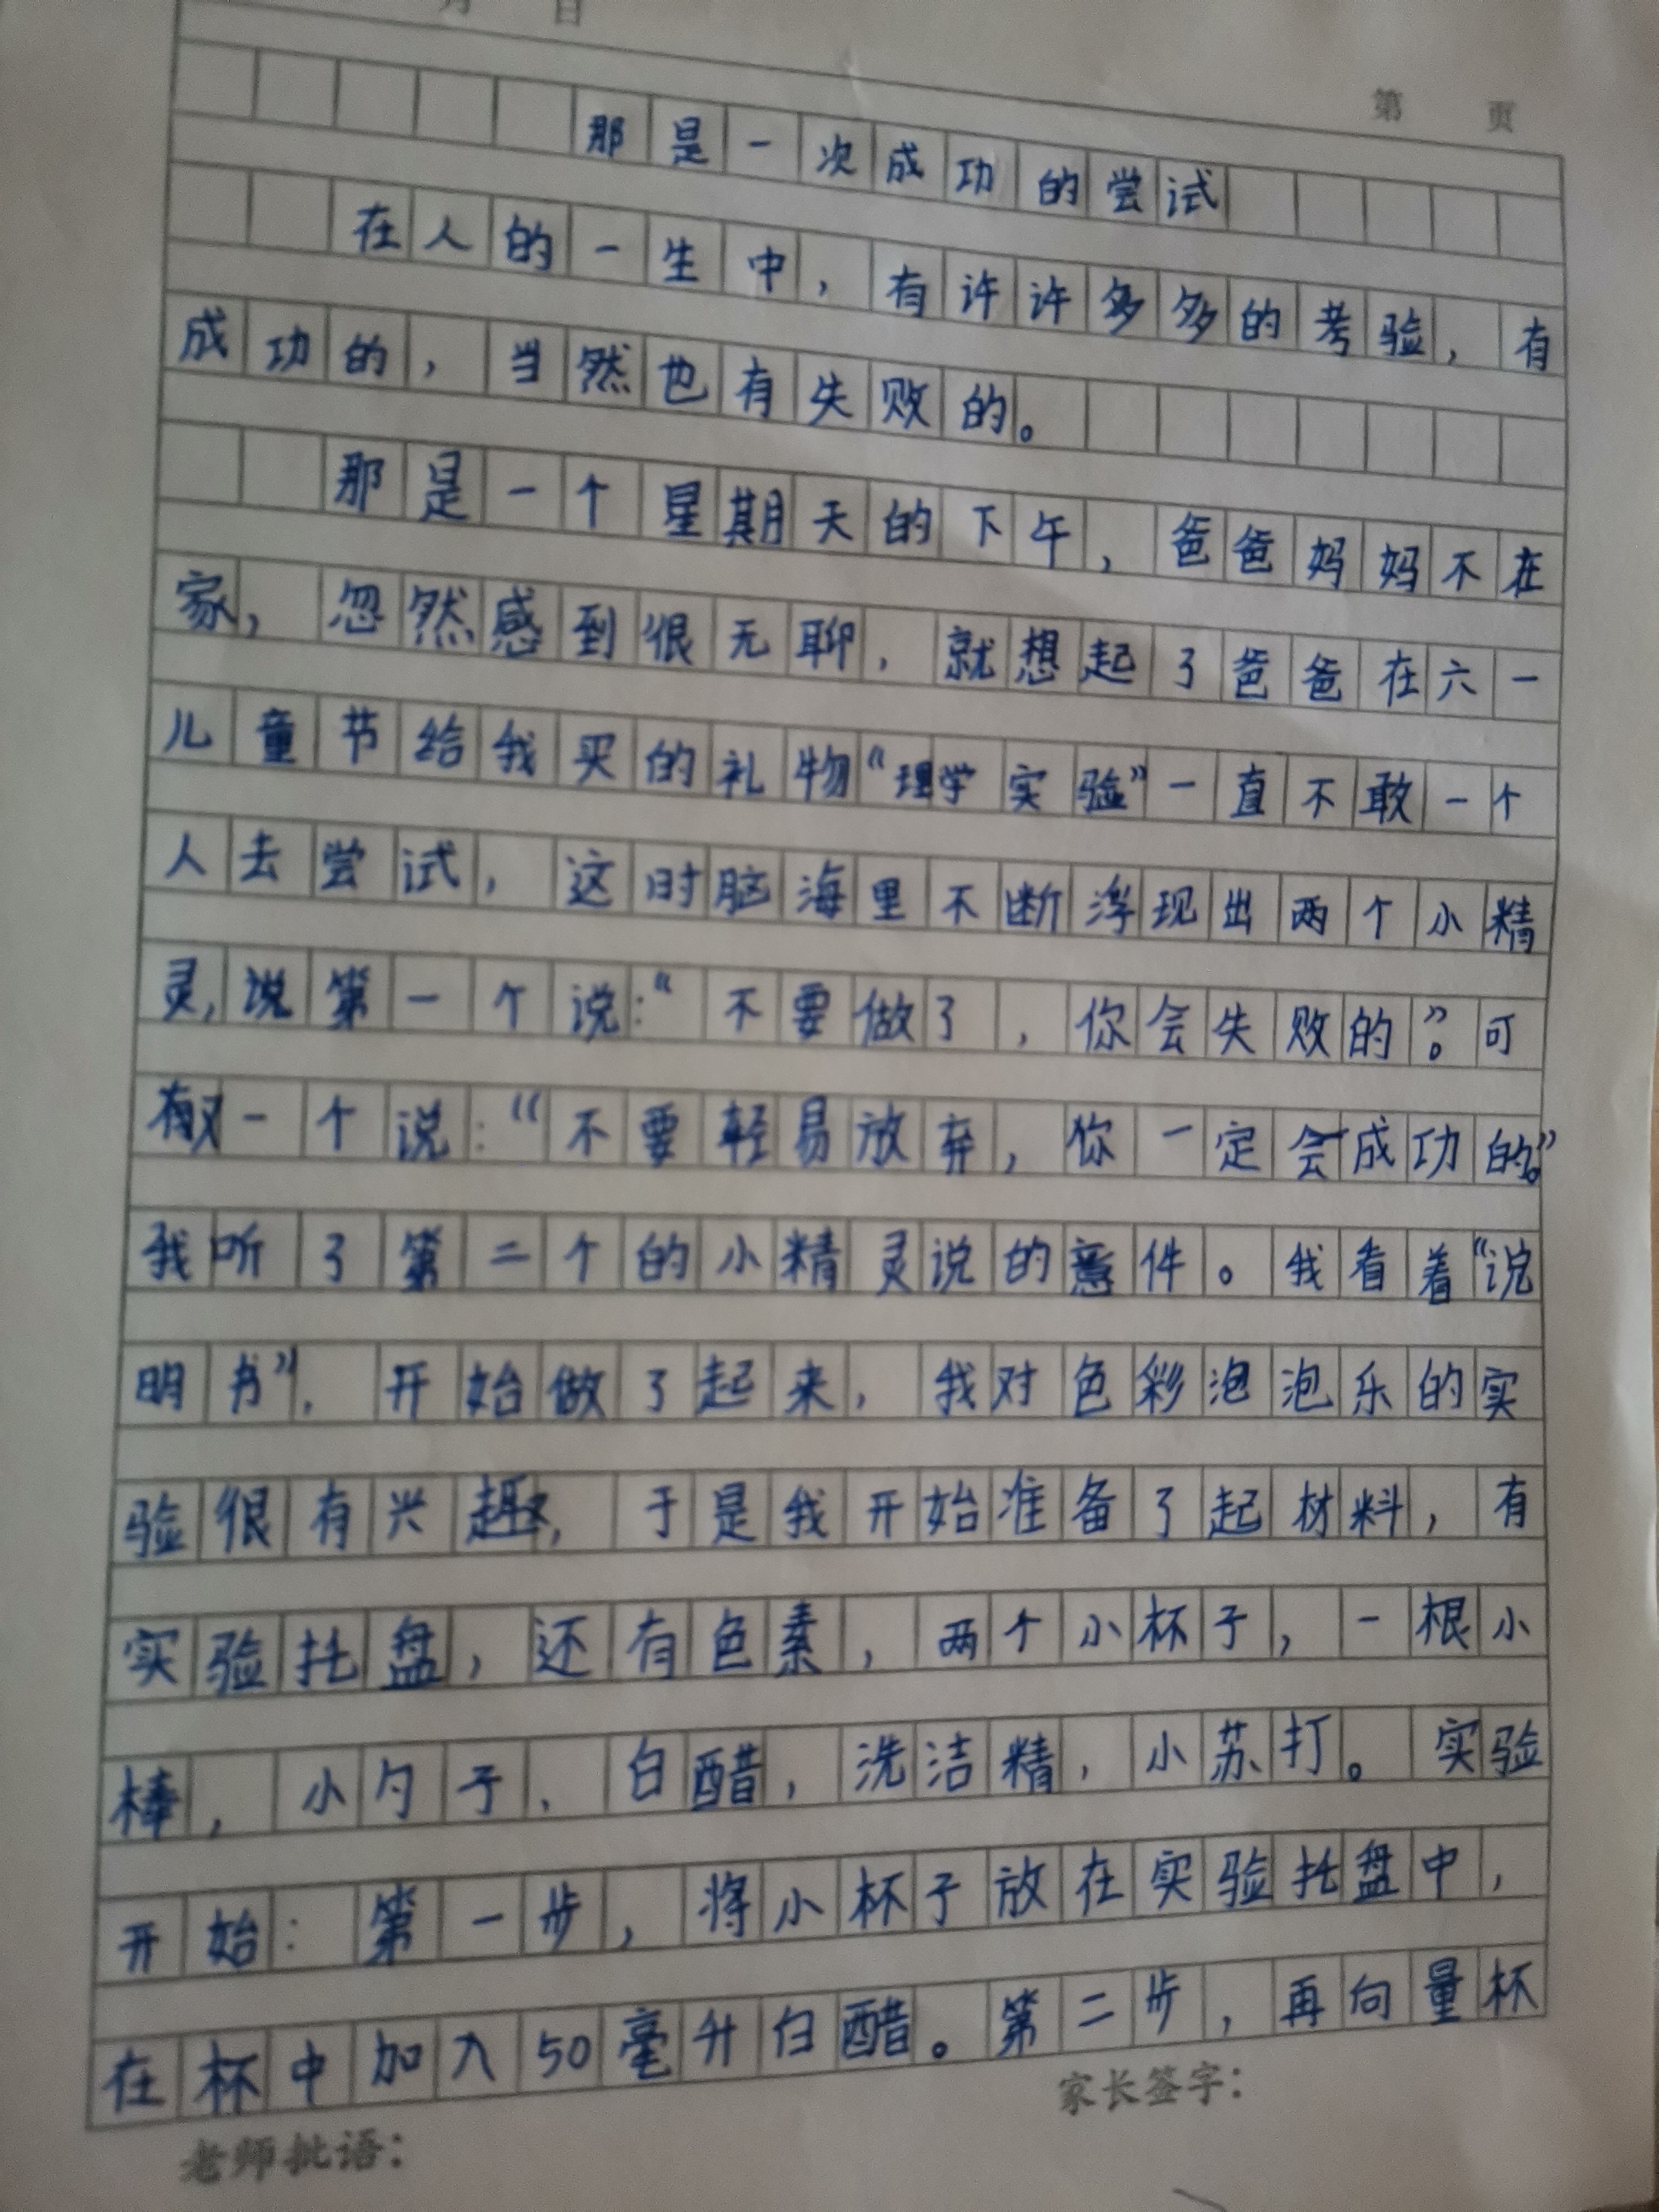 月 日
第 页
那是一次成功的尝试
在人的一生中，有许许多多的考验，有
成功的，当然也有失败的。
那是一个星期天的下午，爸爸妈妈不在
家，忽然感到很无聊，就想起了爸爸在六一
儿童节给我买的礼物“理学实验”一直不敢一个
人去尝试，这时脑海里不断浮现出两个小精
灵，说第一个说：“不要做了，你会失败的”。可
有又一个说：“不要轻易放弃，你一定会成功的。”
我听了第二个的小精灵说的意件。我看着“说
明书”，开始做了起来，我对色彩泡泡乐的实
验很有兴趣，于是我开始准备了起材料，有
实验托盘，还有色素，两个小杯子，一根小
棒，小勺子、白醋，洗洁精，小苏打。实验
开始：第一步，将小杯子放在实验托盘中，
在杯中加入50毫升白醋。第二步，再向量杯
家长签字：
老师批语：